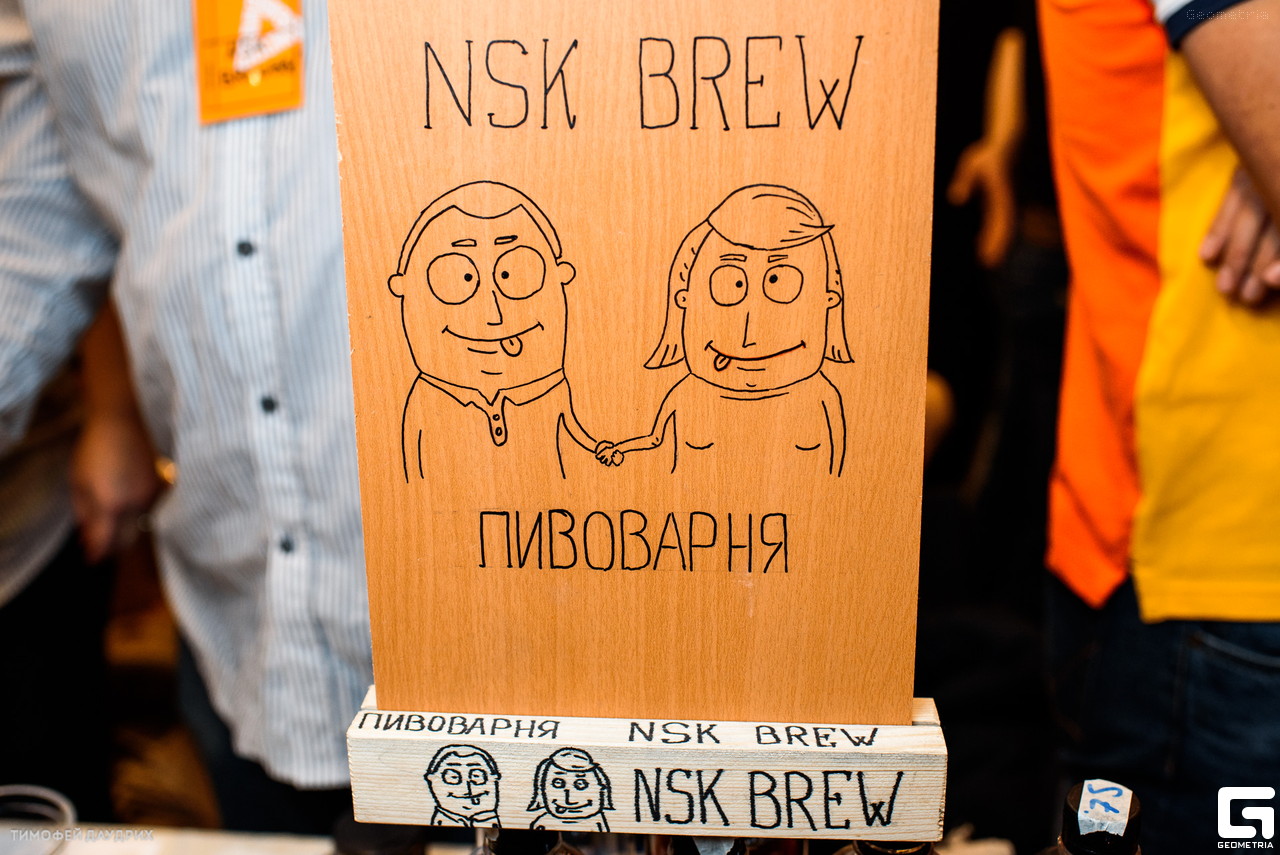 Geometria
NSK BREW
ПИВОВАРНЯ
ПИВОВАРНЯ NSK BREW
NSK BREW
75
GEOMETRIA